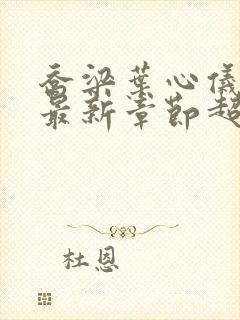 乔梁叶心仪
最新章节超
杜恩